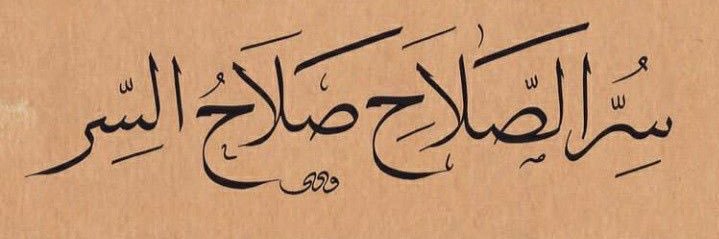 سُرُّ الصَّلَاحِ صَلَاحُ السِّر